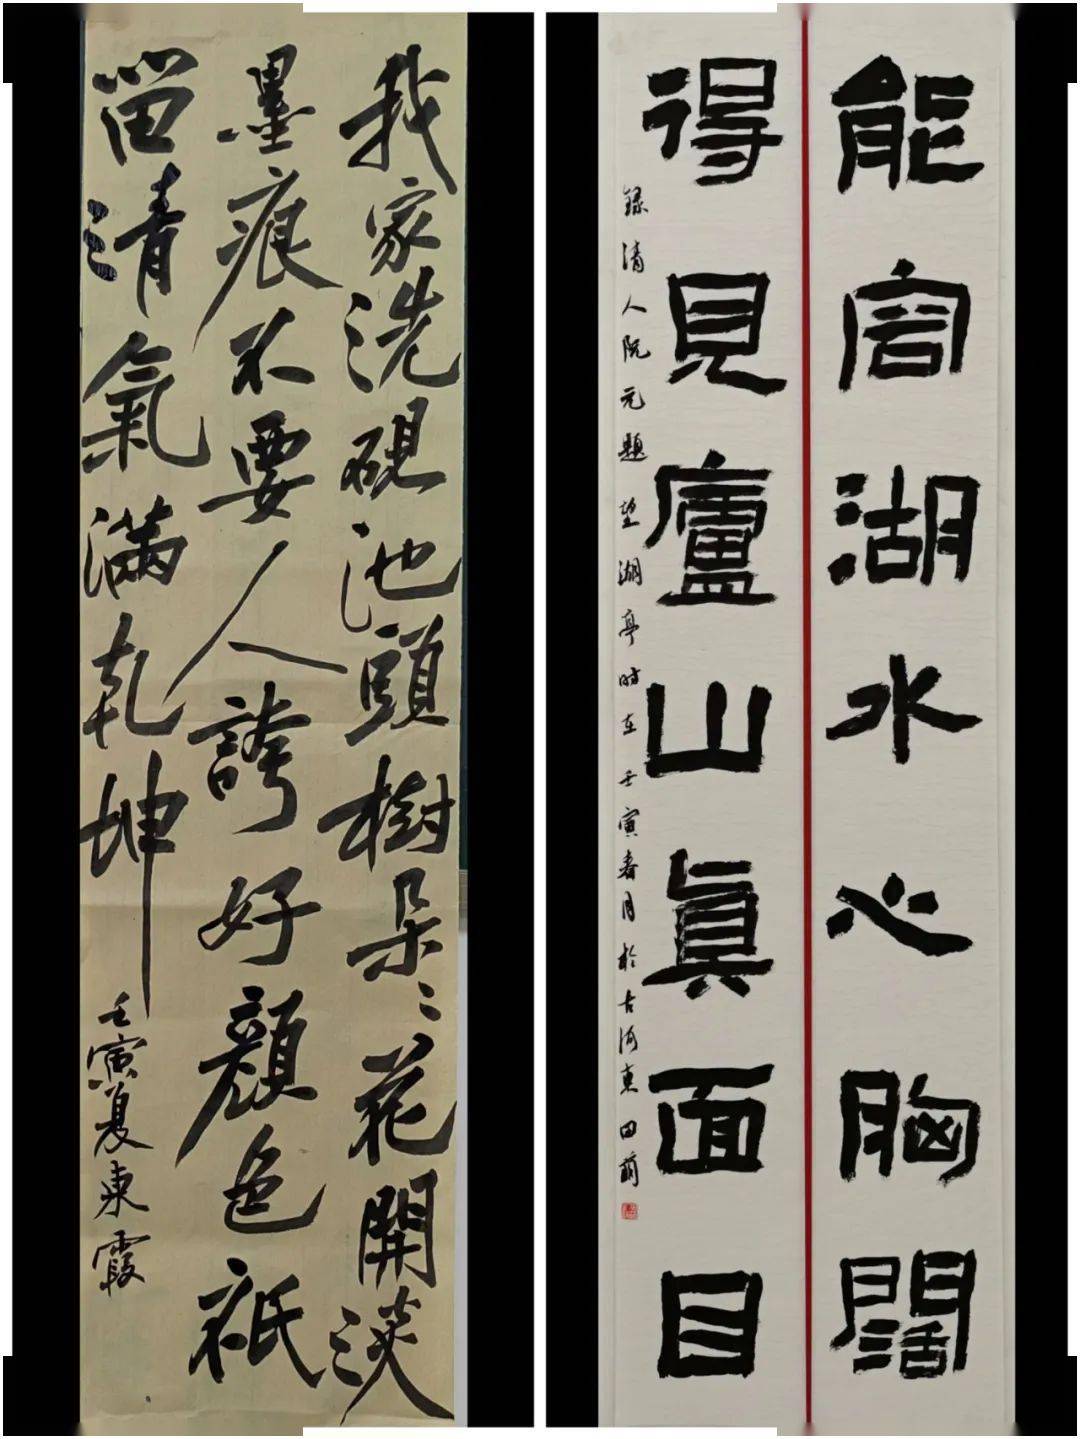 我家洗硯池頭樹朵〻花開淡
墨痕不要人誇好顏色祇
留清氣滿乾坤
壬寅夏東霞
能容湖水心胸闊
得見廬山眞面目
録清人阮元題望湖亭時在壬寅春月於古河東田萌